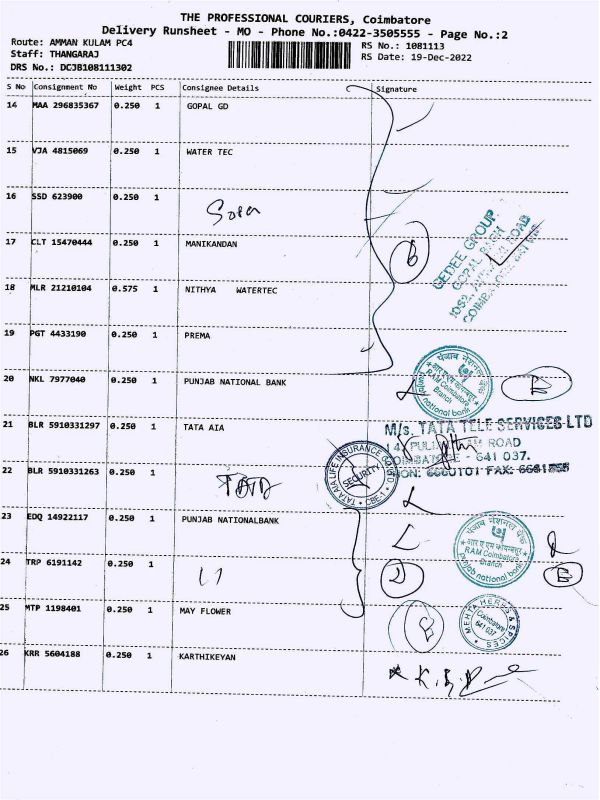 THE PROFESSIONAL COURIERS, Coimbatore
Delivery Runsheet - MO - Phone No.:0422-3505555 - Page No.:2
Route: AMMAN KULAM PC4
RS No.: 1081113
Staff: THANGARAJ
RS Date: 19-Dec-2022
DRS No.: DCJB108111302
S No Consignment No Weight PCS Consignee Details Signature
14 MAA 296835367 0.250 1 GOPAL GD
15 VJA 4815069 0.250 1 WATER TEC
16 SSD 623900 0.250 1
17 CLT 15470444 0.250 1 MANIKANDAN
GEDEE GROUP
GOPAL BAGH
ROAD
18 MLR 21210104 0.575 1 NITHYA WATERTEC
19 PGT 4433190 0.250 1 PREMA
20 NKL 7977040 0.250 1 PUNJAB NATIONAL BANK
पंजाब नैशनल बैंक
RAM Coimbatore
Branch
national bank
21 BLR 5910331297 0.250 1 TATA AIA
M/s. TATA TELE SERVICES LTD
ROAD
641 037.
22 BLR 5910331263 0.250 1
TATA
TATA AIA LIFE INSURANCE CO LTD
SECURITY
CBE-1
23 EDQ 14922117 0.250 1 PUNJAB NATIONALBANK
पंजाब नैशनल बैंक
RAM Coimbatore
Branch
punjab national bank
24 TRP 6191142 0.250 1
25 MTP 1198401 0.250 1 MAY FLOWER
MEHTA HERBS & SPICES
Coimbatore
641 037
26 KRR 5604188 0.250 1 KARTHIKEYAN